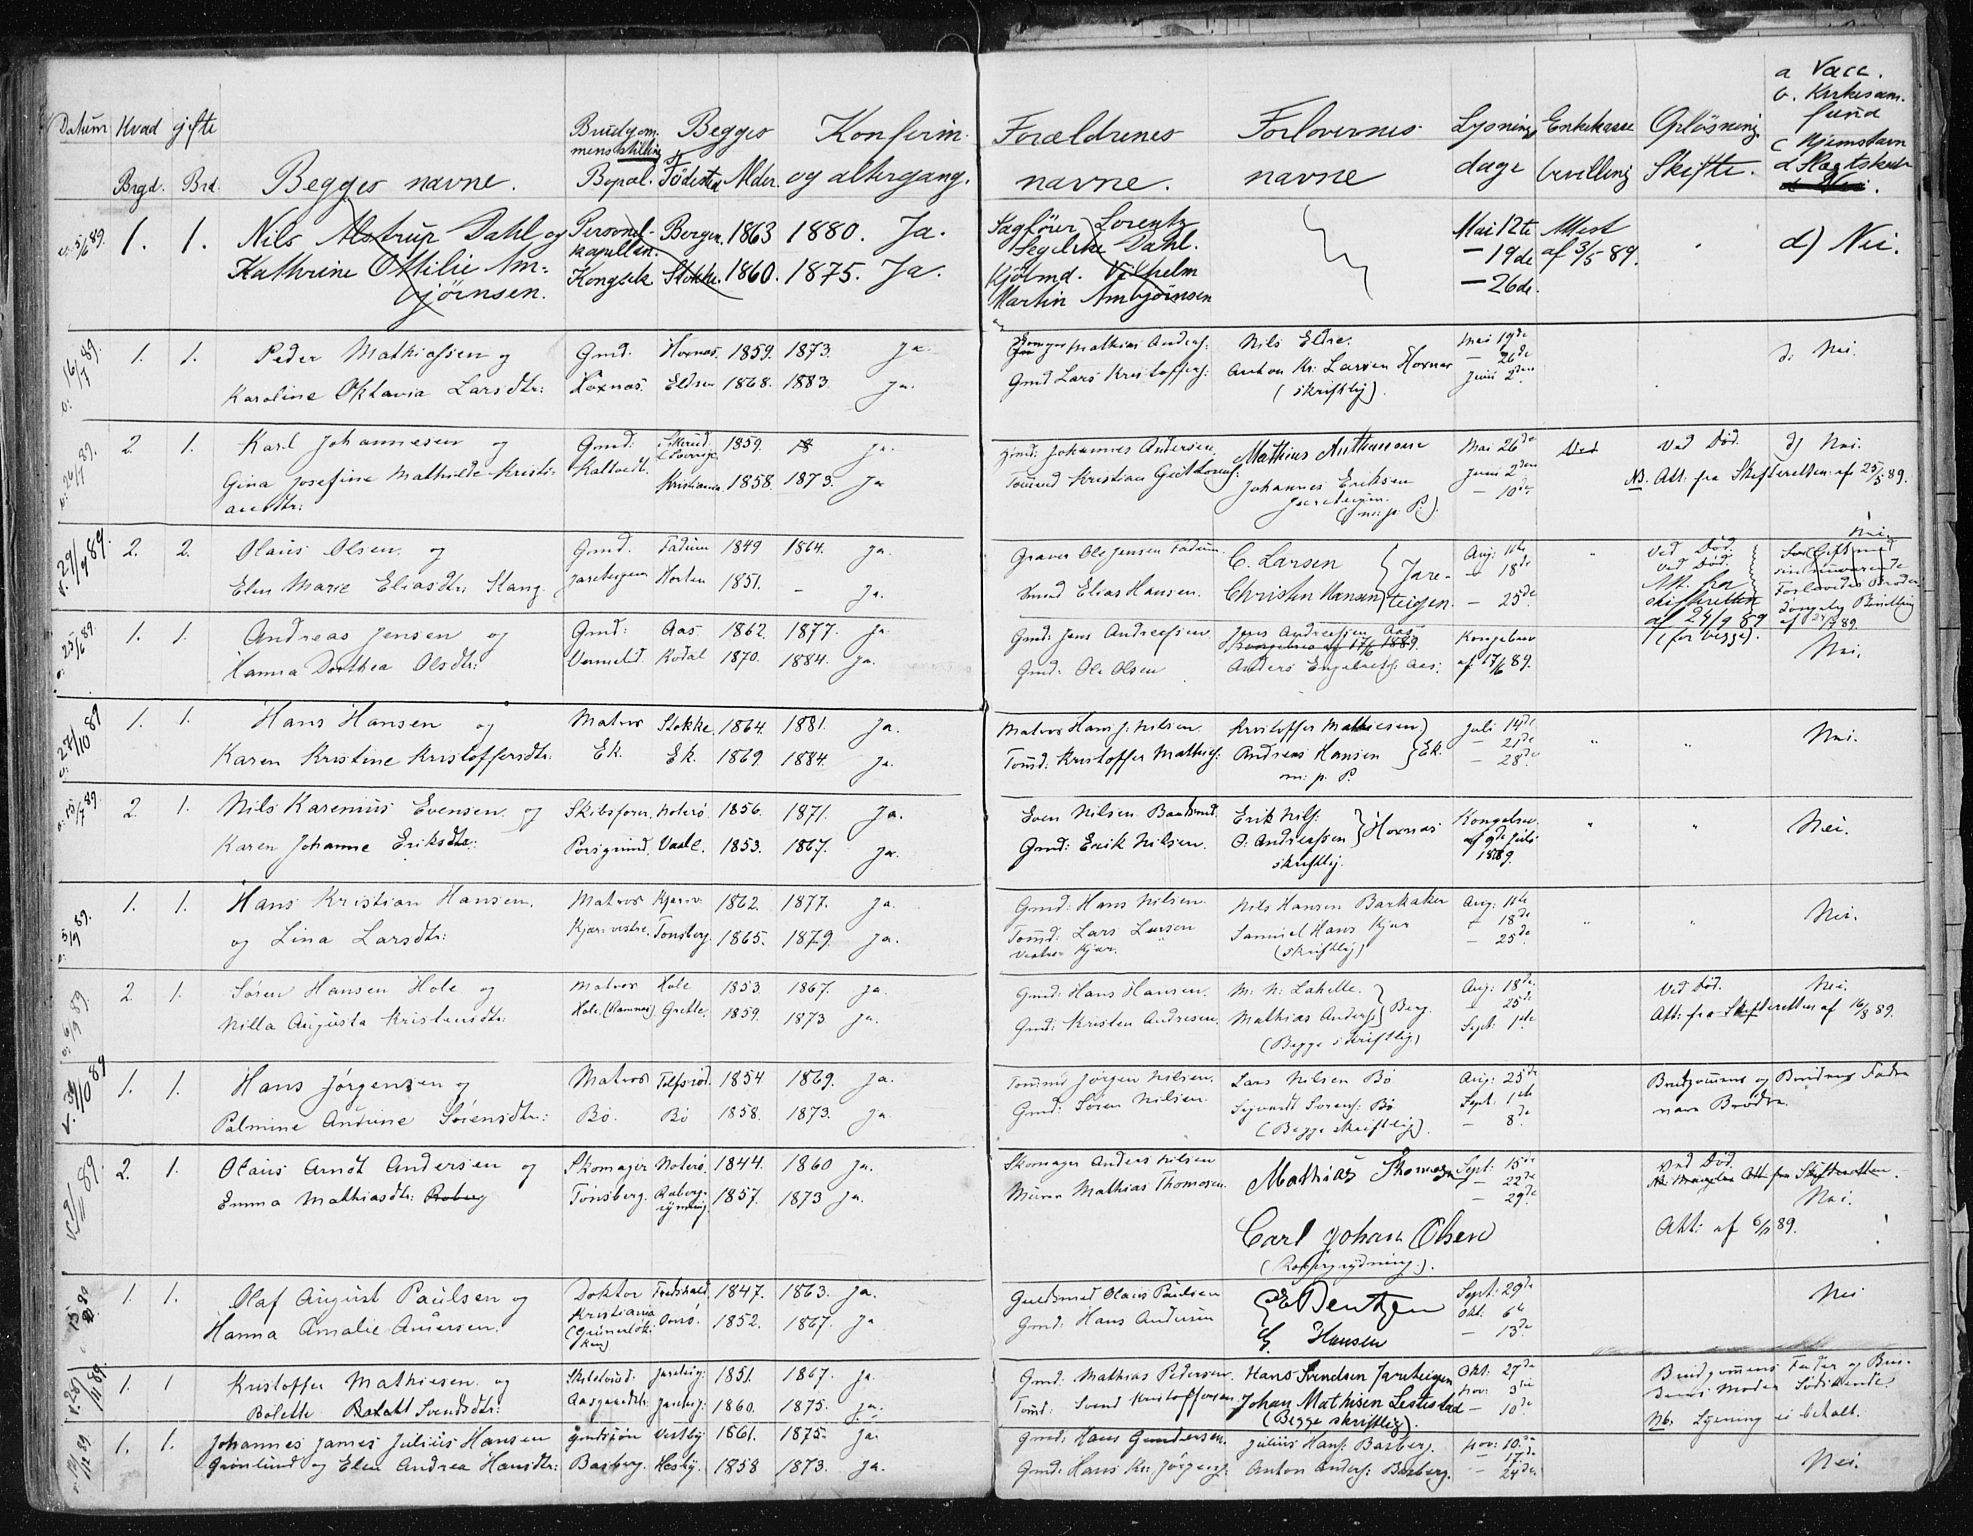 Datum Hvad gifte Brudgommens stilling Begges Konfirm. Forældrenes Forlovernes Lysnings Enkekasse Opløsning a Vacc.
b. Kirkesamfund
c Hjemstavn
d Slægtskab
Brgd. Brd. Begges navne. Bopæl. Födested Alder. og altergang. navne. navne dage bevilling Skifte.
v. 5/6 89. 1. 1. Nils Alstrup Dahl og Personel- Bergen. 1863 1880. Ja. Sagförer Lorentz Mai 12te Attest d) Nei.
Kathrine Ottilie Am= kapellan. Segelcke Dahl. — 19de af 3/5 89.
bjørnsen. Kongsek. Stokke. 1860. 1875. Ja. Kjöbmd. Vilhelm — 26de.
Martin Ambjörnsen
16/7 89. 1. 1. Peder Mathiassen og Gmd. Hoxnas. 1859. 1873. Ja. Mathias Anders: Nils Eldre. Mai 19de d: Nei.
Karoline Oktavia Larsdtr: Hoxnas. 1868. 1883. Ja. Gmd Lars Kristoffers: Anton Kr: Larsen Hoxnas — 26de
(skriftlig). Juni 2den
26/7 89. 2. 1. Karl Johannesen og Gmd: 1859. Ja. Gmd: Johannes Andersen Mathius Anthonsen Mai 26de Ved Död. d) Nei.
Gina Josefine Mathilde Kristi- Kristiania 1858. 1873. Ja Tömmd Kristian Juni 2den NB. Att. fra Skifteretten af 25/5 89.
ansdtr: Johannes Eriksen — 10de
Jareteigen.
(m: p. P.).
v. 29/9 89. 2. 2. Olaus Olsen og Gmd. Fadum 1849 1864. Ja. Graver Ole Jensen Fadum. C. Larsen Aug: 11te " Ved Död. Nei.
Elen Marie Eliasdtr: Stang. Jareteigen Horten 1851. — Ja. Smed Elias Hansen. Christen Hansen Jareteigen. — 18de Ved Död.
— 25de Att. fra
skifteretten
af 24/9 89
(for begge).
25/6 89. 1. 1. Andreas Jensen og Gmd: Aas 1862. 1877. Ja. Gmd: Jens Andreassen Jens Andreassen Aas Kongebrev Nei.
Hanna Dorthea Olsdtr: Vermelid Kodal 1870. 1884. Ja. Gmd: Ole Olsen Anders Engebrets: Aas. af 17/6 89.
27/10 89 1. 1. Hans Hansen og Matros Stokke 1864. 1881. Ja. Matros Hans J. Nilsen. Kristoffer Mathiesen Juli 14de " " Nei.
Karen Kristine Kristoffersdtr: Ek. Ek. 1869. 1884. Ja. Tömd: Kristoffer Mathies: Andreas Hansen Ek. — 21de
m: p. P. — 28de
15/7 89. 2. 1. Nils Karenius Evensen og Skibsförer Noterö 1856. 1871. Ja. Even Nilsen Baadsmd. Erik Nils: Kongebrev " " Nei.
Karen Johanne Eriksdtr: Porsgrund. Vaale. 1853. 1867. Ja. Gmd: Erik Nilsen. O. Andreassen Hoxnas af 9de Juli
skriftlig. 1889.
5/9 89. 1. 1. Hans Kristian Hansen. Matros 1862. 1877. Ja. Gmd: Hans Nilsen. Nils Hansen Barkaker Aug: 11te " " Nei.
og Lina Larsdtr: Kjær vestre. Tönsberg. 1865. 1879. Ja. Tömd: Lars Larsen Samuel Hans Kjær — 18de
vestre Kjær. (skriftlig) — 25de
6/9 89. 2. 1. Sören Hansen Hole og Matros Hole 1853 1867. Ja. Gmd: Hans Hansen. M. N. Lahelle. Aug: 18de Ved Död. Nei.
Nilla Augusta Kristensdtr: Hole. (Ramnes) Gretle. 1859. 1873 Ja. Gmd: Kristen Andresen. Mathias Anders: Berg. — 25de Att: fra Skifteretten af 16/8 89.
(Begge skriftlig) Sept: 1ste
1. 1. Hans Jörgensen og Matros 1854 1869. Ja. Tömmd Jörgen Nilsen. Lars Nilsen Bö Aug: 25de Brudgommens og Brudens Fader
Palmine Andrine Sörensdtr: Bö. Bö 1858. 1873. Ja. Gmd: Sören Nilsen. Syvardt Sörens: Bö Sept. 1ste vare Brödre.
(Begge skriftlig). — 8de
2. 1. Olaus Arndt Andersen og Skomager Noterö. 1844. 1860 Ja. Skomager Anders Nilsen Mathias Skomager Sept: 15de Ved Död.
Emma Mathiasdtr: Tönsberg. 1857. 1873 Ja. Murer Mathias Thomasen — 22de Nei.
— 29de
Carl Johan Olsen Att: af 6/11 89.
1. 1. Olaf August Paulsen og Doktor Fredshald. 1847. 1863. Ja. Guldsmed Olaus Paulsen Bentzen Sept: 29de Nei
Hanna Amalie Andersen. Kristiania Onsö. 1852. 1867. Ja Gmd: Hans Andersen G Hansen Okt. 6te
(Grünerlök- — 13de
ken)
1. 1 Kristoffer Mathiesen og Jareteig: 1851. 1867. Ja. Gmd: Mathias Pedersen. Hans Svendsen Jareteigen Okt. 27de Brudgommens Fader og Bru-
Bolette Svendsdtr: Aasgaardstr: Jareteig: 1860. 1875. Ja. Tömd: Svend Kristoffersen Johan Mathisen Lestestad Nov: 3die dens Moder Södskende
(Begge skriftlig). — 10de Nb. Lysning ei betalt.
1. 1. Johannes James Julius Hansen Gmdssön Vestby. 1861. 1875. Ja. Gmd: Hans Gundersen. Julius Hans: Basberg. Nov: 10de Nei.
Grönlund og Elen Andrea Hansdtr: Basberg. Hesby. 1858 1873. Ja. Gmd: Hans Kr. Jörgens: Anton Anders: Basberg. — 17de
— 24de